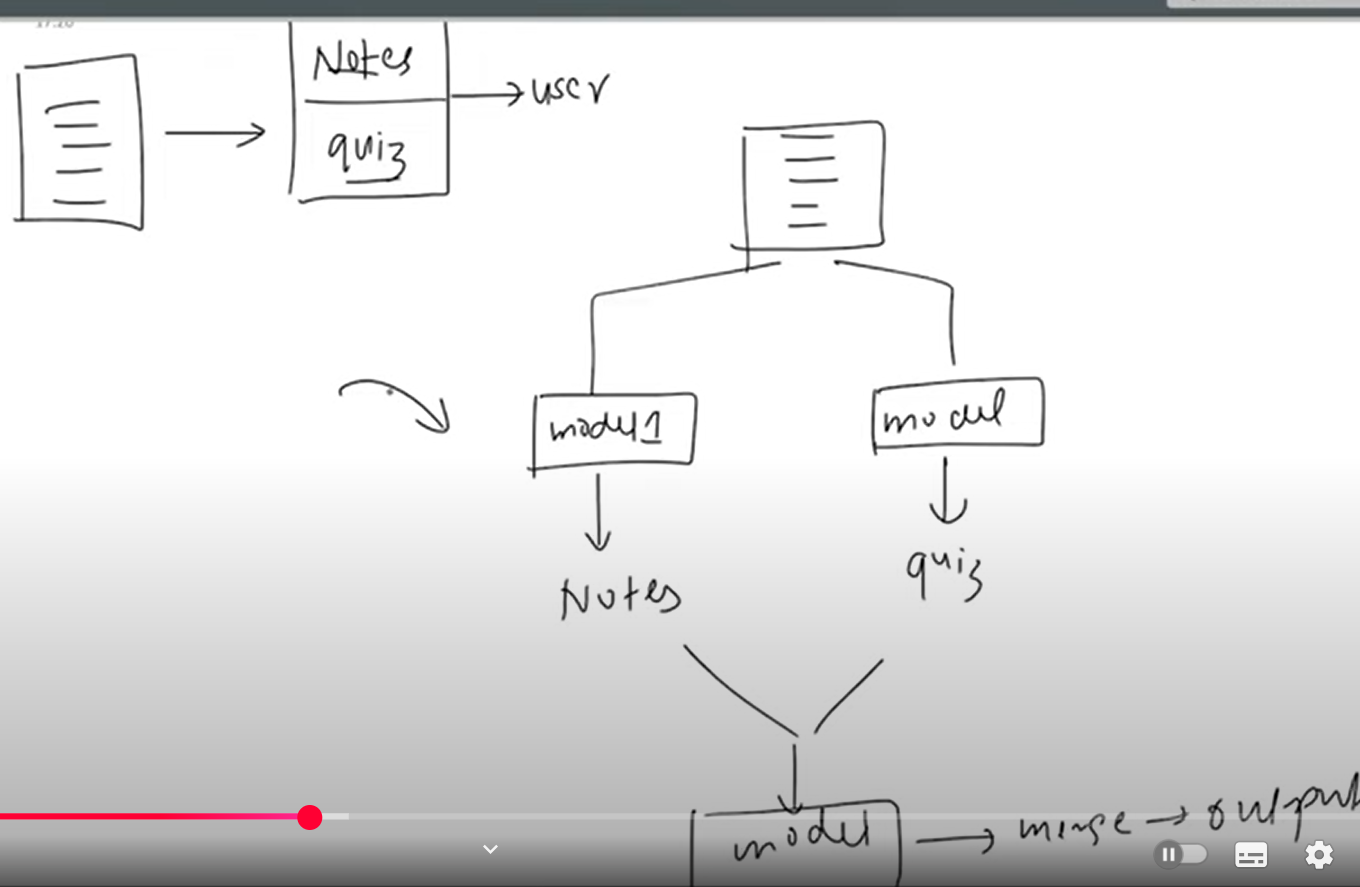 Notes
quiz
user
model1
model
Notes
quiz
model
merge
output